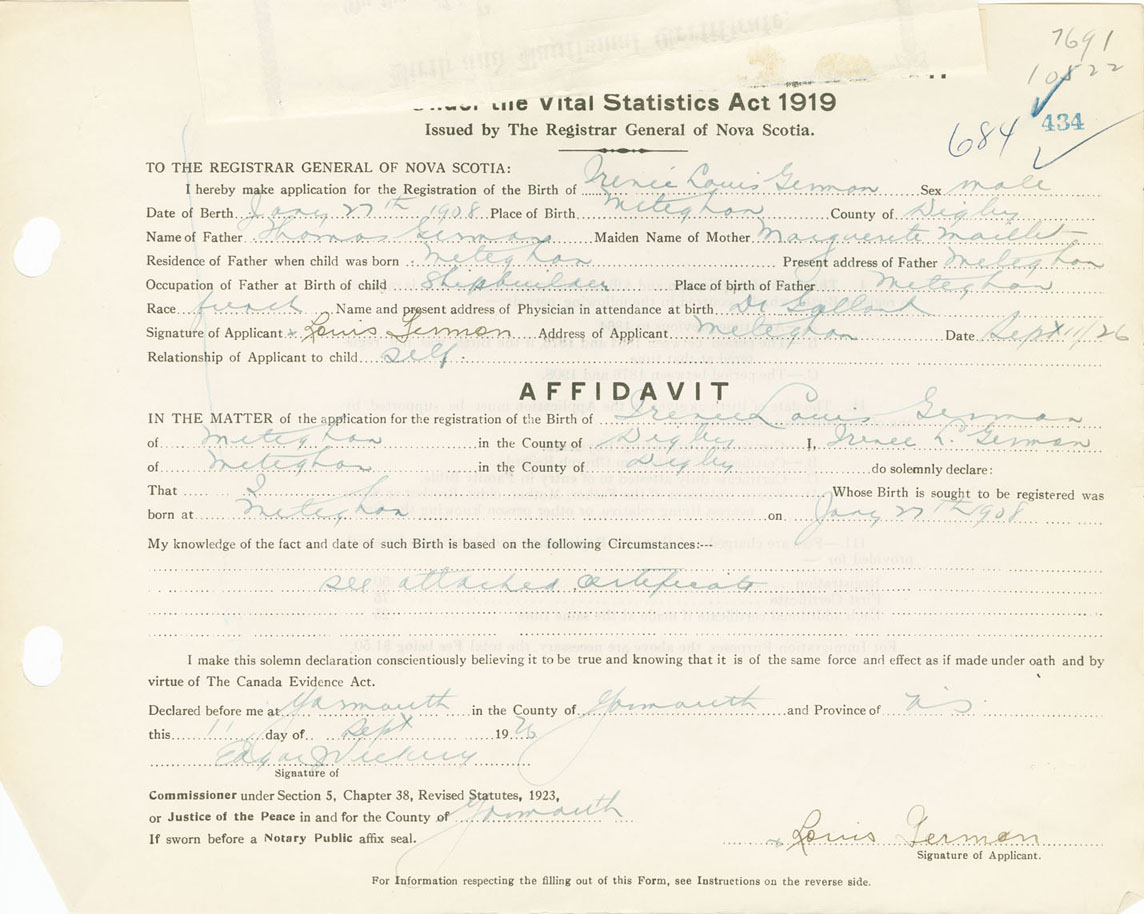 7691
10822
Under the Vital Statistics Act 1919
Issued by The Registrar General of Nova Scotia.
684 434
TO THE REGISTRAR GENERAL OF NOVA SCOTIA:
I hereby make application for the Registration of the Birth of Irenee Louis German Sex male
Date of Berth Jany 27th 1908 Place of Birth Meteghan County of Digby
Name of Father Thomas German Maiden Name of Mother Marguerite Maillet
Residence of Father when child was born Meteghan Present address of Father Meteghan
Occupation of Father at Birth of child Shipbuilder Place of birth of Father Meteghan
Race french Name and present address of Physician in attendance at birth Dr
Signature of Applicant x Louis German Address of Applicant Meteghan Date Sept 11/26
Relationship of Applicant to child self.
AFFIDAVIT
IN THE MATTER of the application for the registration of the Birth of Irenee Louis German
of Meteghan in the County of Digby I, Irenee L. German
of Meteghan in the County of Digby do solemnly declare:
That I Whose Birth is sought to be registered was
born at Meteghan on Jany 27th 1908
My knowledge of the fact and date of such Birth is based on the following Circumstances:---
see attached certificate
I make this solemn declaration conscientiously believing it to be true and knowing that it is of the same force and effect as if made under oath and by
virtue of The Canada Evidence Act.
Declared before me at Yarmouth in the County of Yarmouth and Province of NS
this 11 day of Sept 1926
Edgar Vickery
Signature of
Commissioner under Section 5, Chapter 38, Revised Statutes, 1923,
or Justice of the Peace in and for the County of Yarmouth
If sworn before a Notary Public affix seal.
x Louis German
Signature of Applicant.
For Information respecting the filling out of this Form, see Instructions on the reverse side.